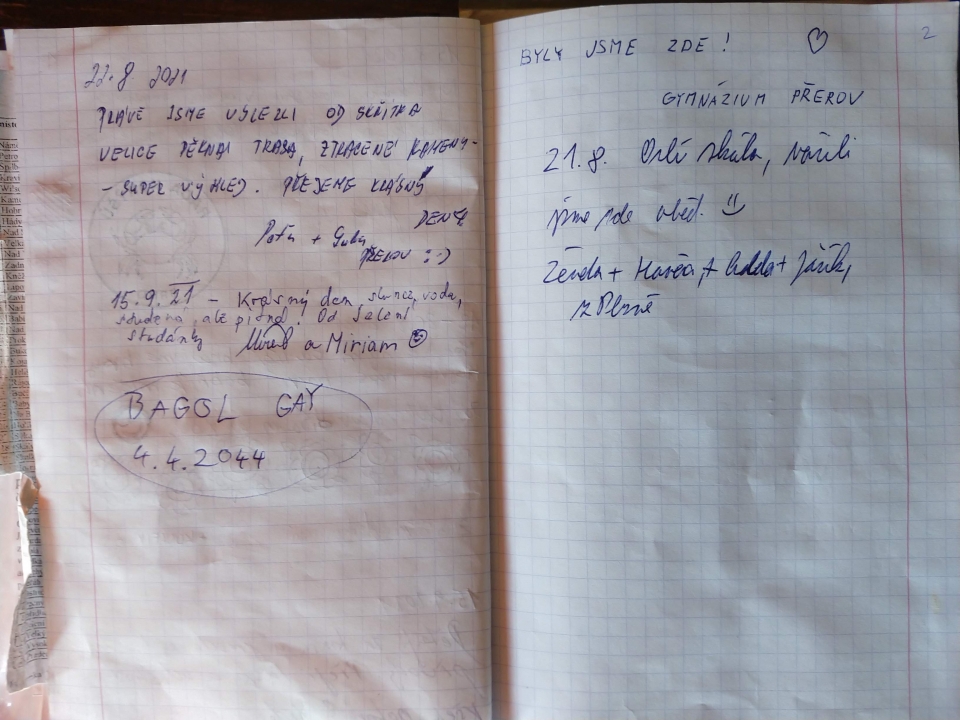 22.8 2021
PRÁVĚ JSME VYLEZLI OD SKŘÍTKA
VELICE PĚKNÁ TRASA, ZTRACENÉ KAMENY -
- SUPER VÝHLED. PŘEJEME KRÁSNÝ
DEN
Petr +
PŘEROV :-)
15.9.21 - Krásný den, slunce, voda,
studená, ale pitná. Od Zelené
studánky Mirek a Miriam
BAGOL GAY
4.4.2044
2
BYLY JSME ZDE!
GYMNÁZIUM PŘEROV
21.8. Orlí skála, vařili
jsme zde oběd.
Zénda + + + Jařík,
z Plzně